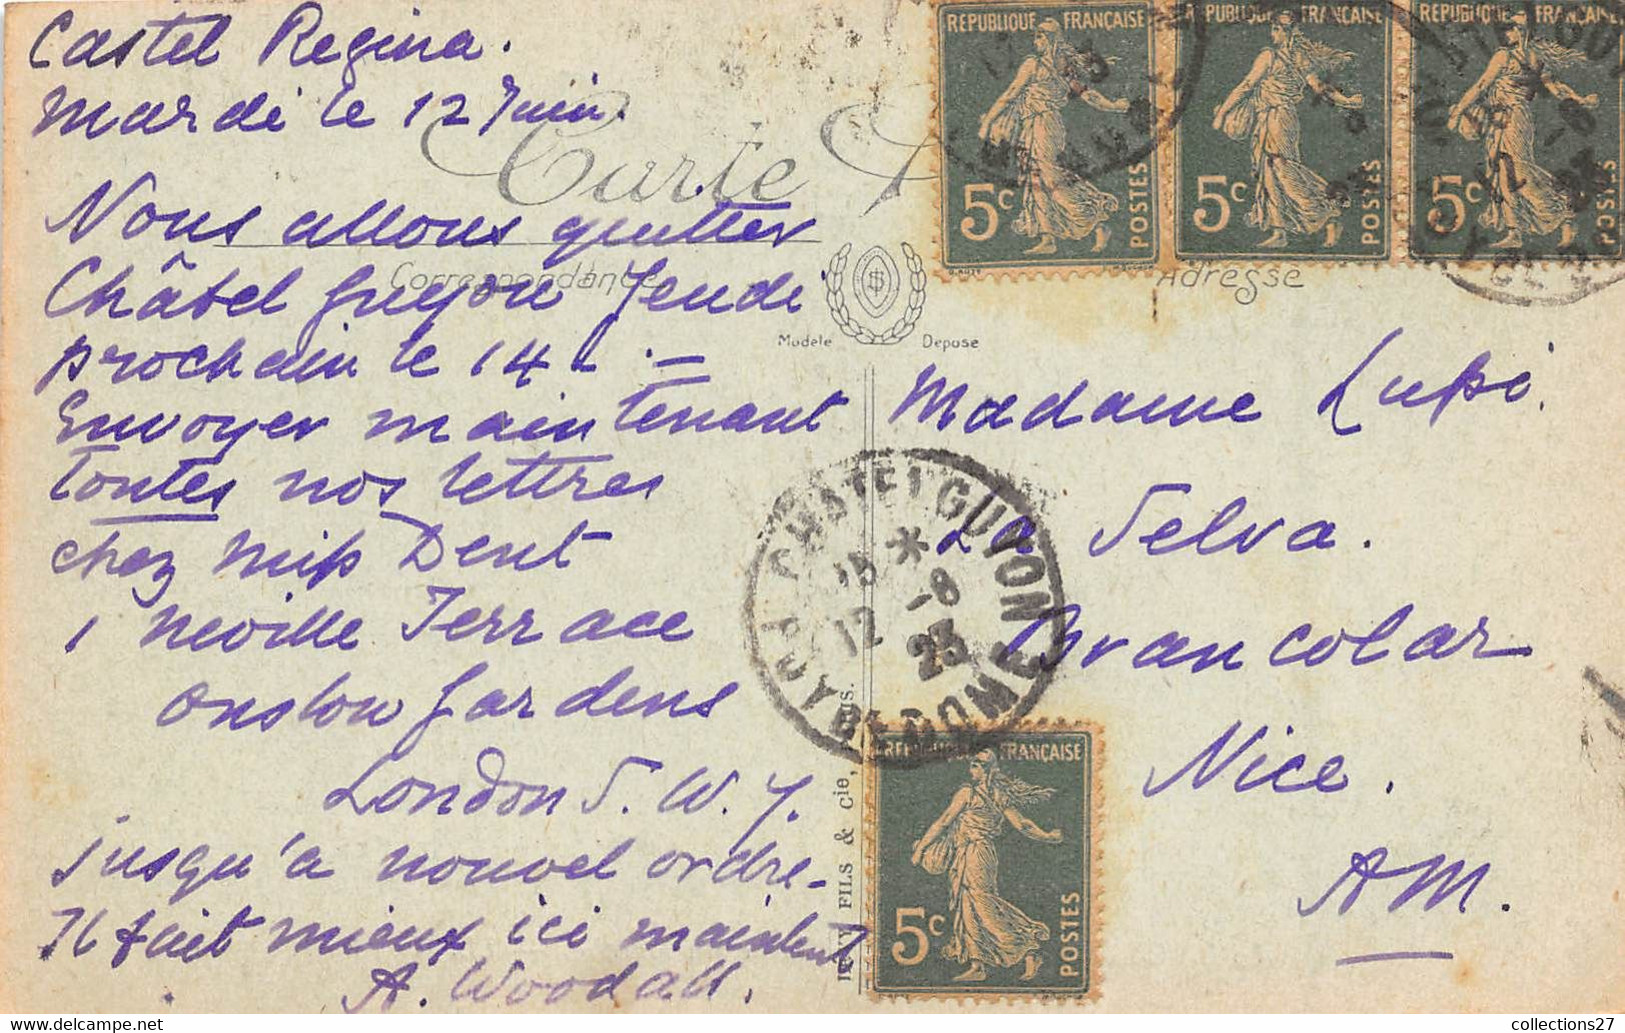 Castel Regina.
Mardi le 12 Juin.
Carte
Nous allons quitter
Correspondance
Châtel Guyon Jeudi
prochain le 14 . —
Envoyer maintenant
toutes nos lettres
chez Miss Dent
1 Neville Terrace
Onslow Gardens
London S. W. 7.
jusqu'à nouvel ordre—
Il fait mieux ici maintenant
A. Woodall.
REPUBLIQUE FRANÇAISE
5c POSTES
REPUBLIQUE FRANÇAISE
5c POSTES
REPUBLIQUE FRANÇAISE
5c POSTES
Adresse
Modèle Déposé
Madame Lupi.
La Selva.
Brancolar
Nice.
AM.
CHATEL GUYON
PUY DE DOME
12 -6
23
FILS & Cie,
REPUBLIQUE FRANÇAISE
5c POSTES
collections27